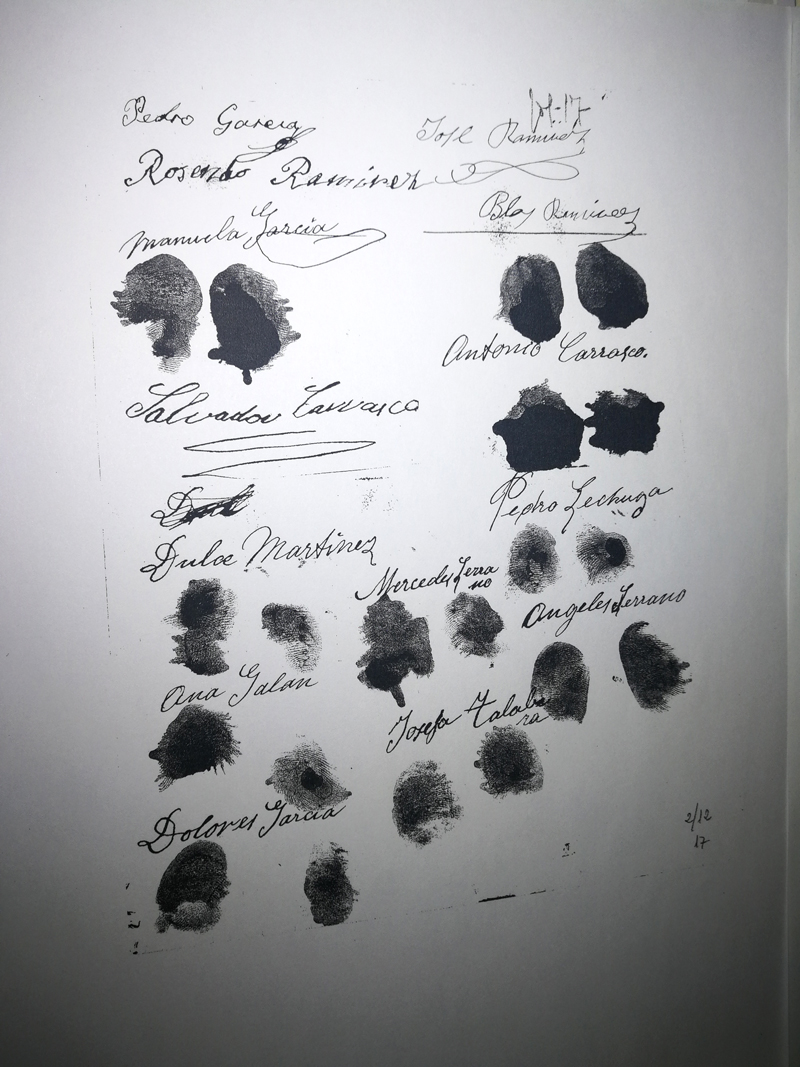 Pedro Garcia
fol-17
José Ramirez
Rosendo Ramirez
Blas Ramirez
Manuela Garcia
Antonio Carrasco.
Salvador Carrasco
Pedro Lechuga
Dulce Martinez
Mercedes Serra
no
Angeles Serrano
Ana Galan
Josefa Talabe
ra
Dolores Garcia
2/12
17